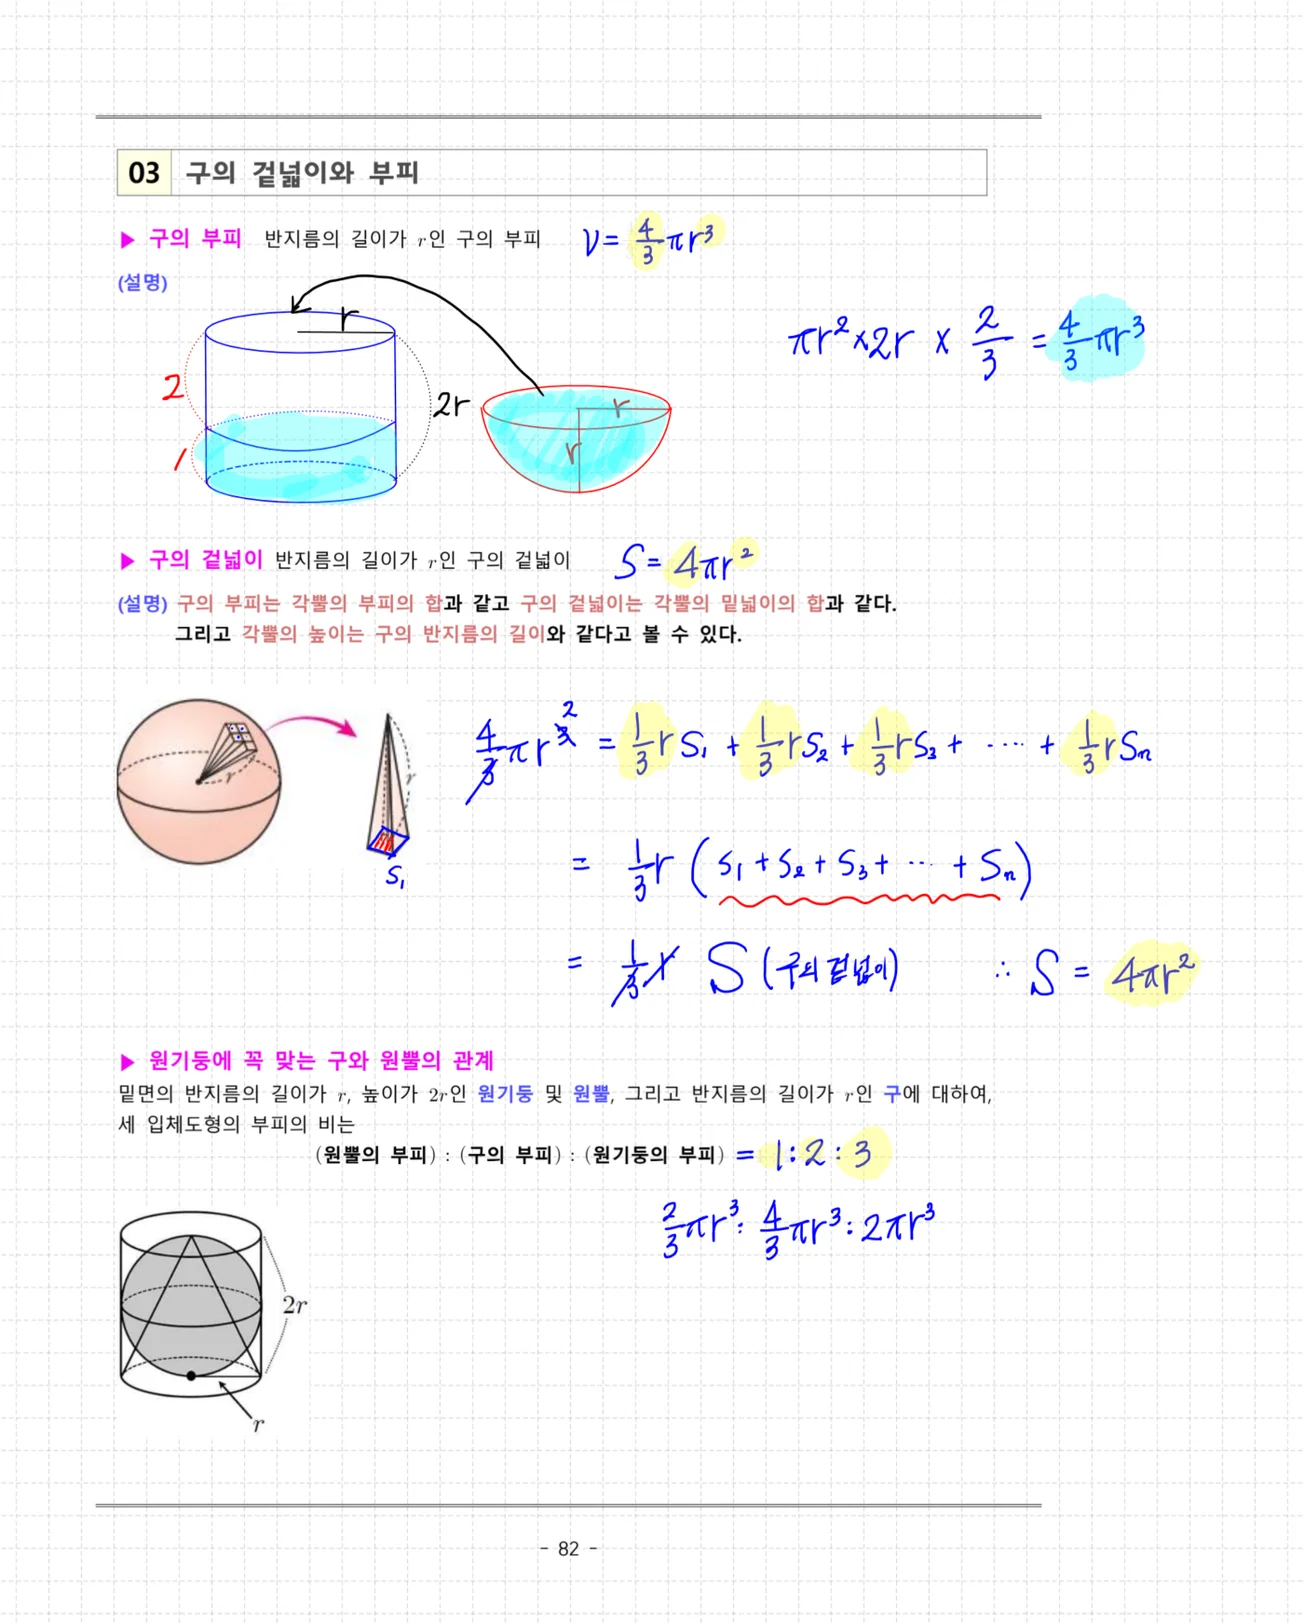 03 구의 겉넓이와 부피
▶ 구의 부피 반지름의 길이가 r인 구의 부피 V = 4/3 πr³
(설명)
r
πr² × 2r × 2/3 = 4/3 πr³
2
2r
r
1
r
▶ 구의 겉넓이 반지름의 길이가 r인 구의 겉넓이 S = 4πr²
(설명) 구의 부피는 각뿔의 부피의 합과 같고 구의 겉넓이는 각뿔의 밑넓이의 합과 같다.
그리고 각뿔의 높이는 구의 반지름의 길이와 같다고 볼 수 있다.
4/3 πr³ ² = 1/3 r S₁ + 1/3 r S₂ + 1/3 r S₃ + ⋯ + 1/3 r Sₙ
r
r
S₁
= 1/3 r (S₁ + S₂ + S₃ + ⋯ + Sₙ)
= 1/3 r S (구의 겉넓이) ∴ S = 4πr²
▶ 원기둥에 꼭 맞는 구와 원뿔의 관계
밑면의 반지름의 길이가 r, 높이가 2r인 원기둥 및 원뿔, 그리고 반지름의 길이가 r인 구에 대하여,
세 입체도형의 부피의 비는
(원뿔의 부피) : (구의 부피) : (원기둥의 부피) = 1 : 2 : 3
2/3 πr³ : 4/3 πr³ : 2πr³
2r
r
- 82 -